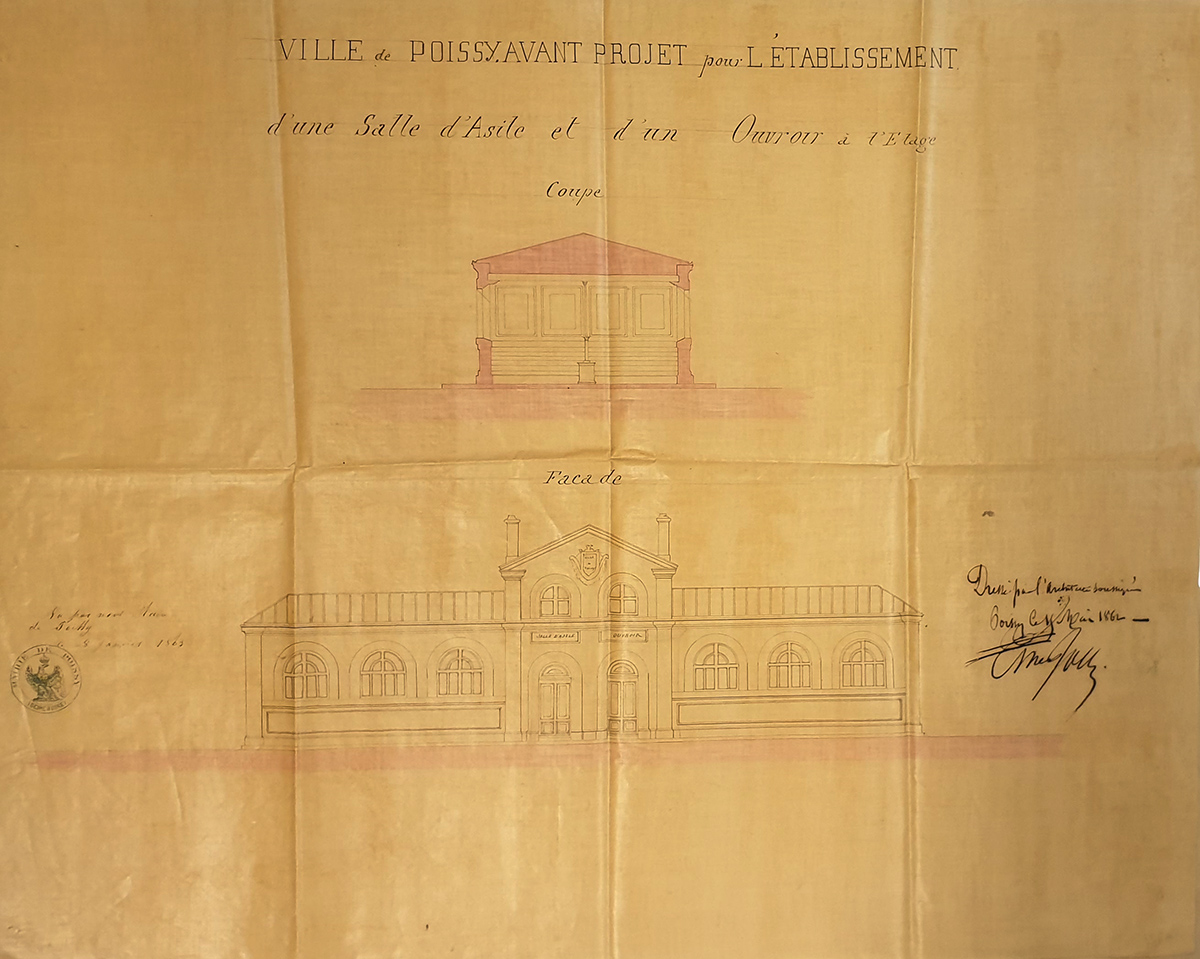 VILLE de POISSY. AVANT PROJET pour L'ÉTABLISSEMENT
d'une Salle d'Asile et d'un Ouvroir à l'Etage
Coupe
Facade
SALLE D'ASILE
OUVROIR
Vu par nous
de Poissy
janvier 1863
MAIRIE DE POISSY
Dressé par l'Architecte soussigné
Poissy le Mai 1862